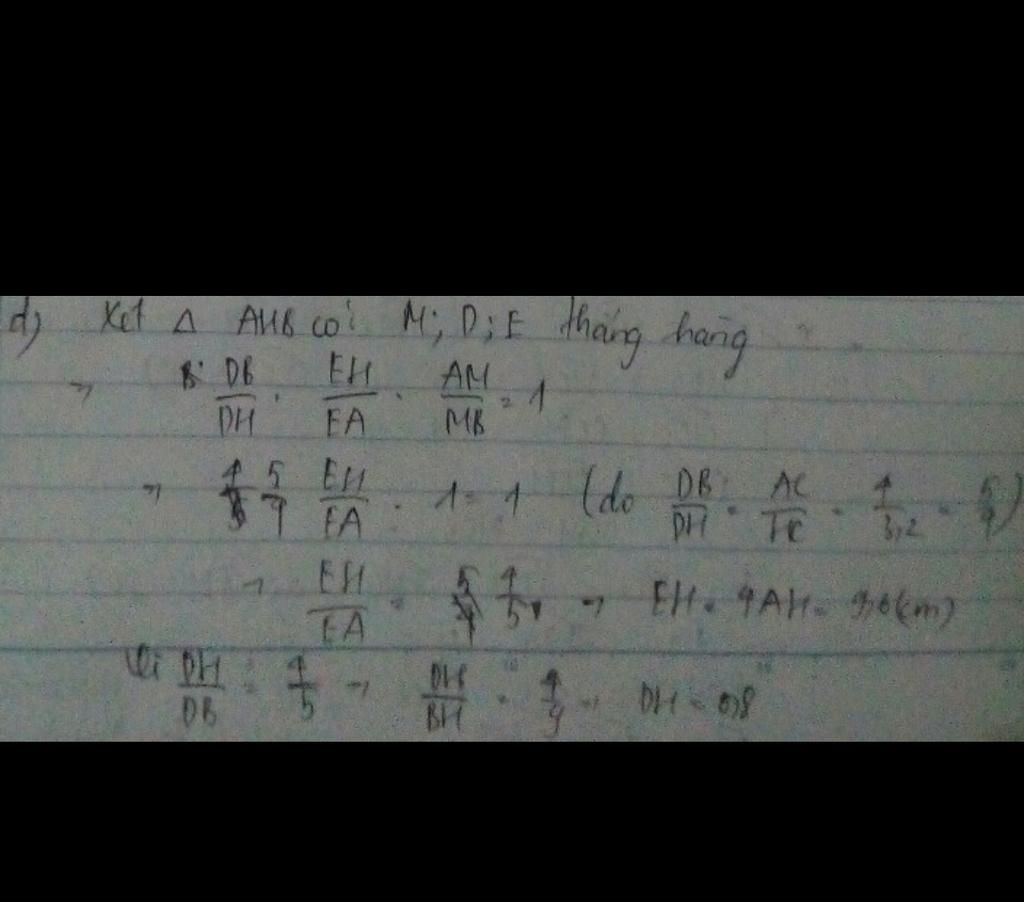 d) Xét Δ AHB có: M; D; E thẳng hàng
→ DB/DH . EH/EA . AM/MB = 1
→ 5/4 EH/EA . 1 = 1 (do DB/DH = AC/HC = 4/3,2 = 5/4)
→ EH/EA = 4/5 → EH = 4AH = 9,6(cm)
Vì DH/DB = 4/5 → DH/BH = 4/9 → DH = 0,8